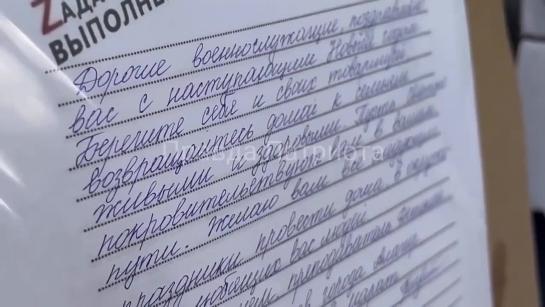 ZАДА
ВЫПОЛНЕ
Дорогие военнослужащие, поздравляю
вас с наступающим Новым годом
Берегите себя и своих товарищей
возвращайтесь домой к семьям
живыми и здоровыми. Пусть
покровительствует вам в вашем
пути. Желаю вам все
праздники провести дома в
любящих вас людей
преподаватель
города